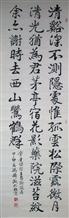 清溪深不測隱處惟孤雲松際露微月
清光猶為君茅亭宿花影藥院滋苔紋
余亦謝時去西山鸞鶴群